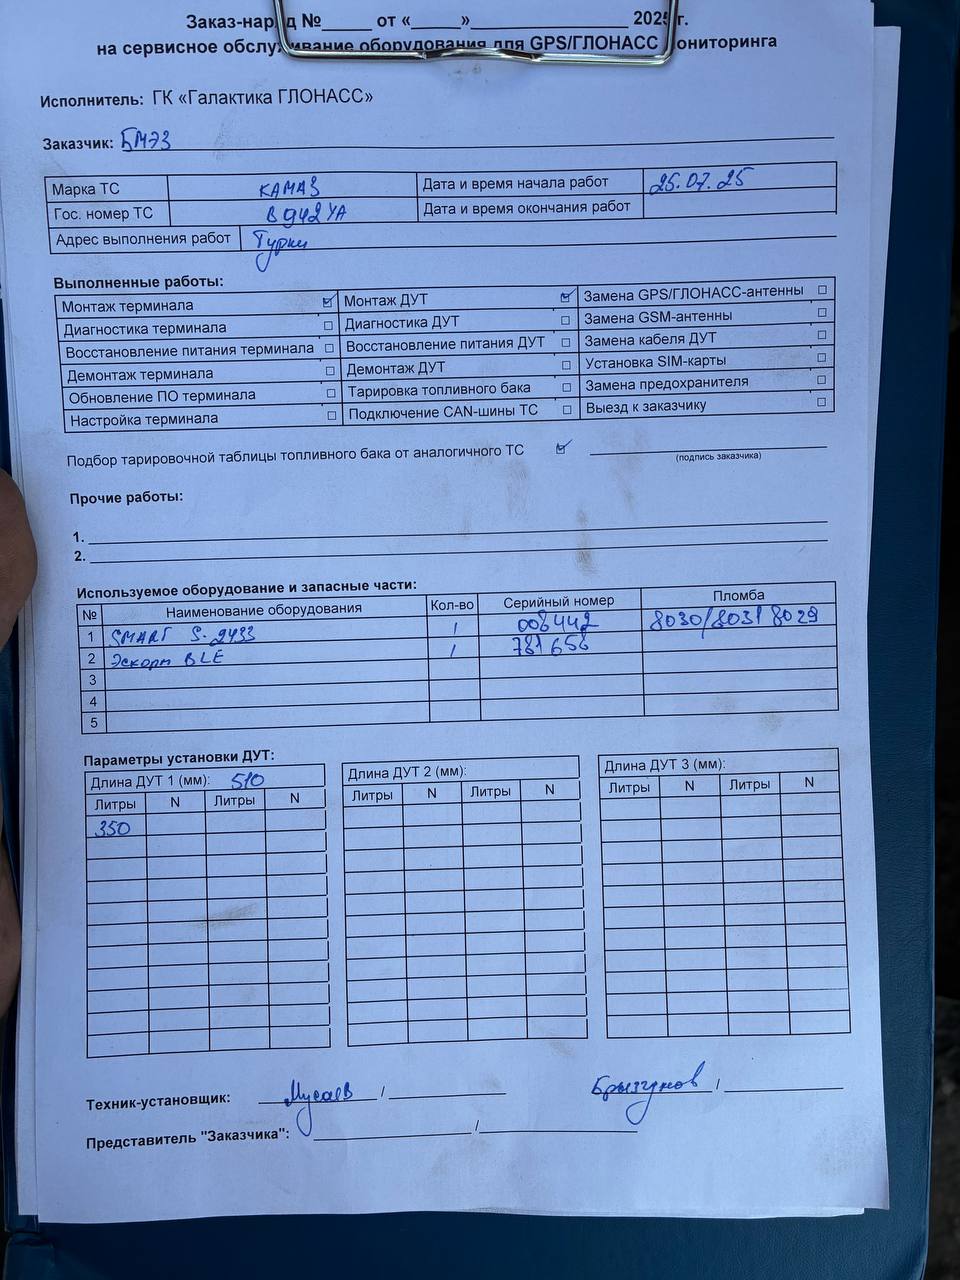 Заказ-наряд № от « » 2025 г.
на сервисное обслуживание оборудования для GPS/ГЛОНАСС мониторинга
Исполнитель: ГК «Галактика ГЛОНАСС»
Заказчик: БМЭЗ
Марка ТС КАМАЗ Дата и время начала работ 25.07.25
Гос. номер ТС В942УА Дата и время окончания работ
Адрес выполнения работ Турки
Выполненные работы:
Монтаж терминала ☑ Монтаж ДУТ ☑ Замена GPS/ГЛОНАСС-антенны ☐
Диагностика терминала ☐ Диагностика ДУТ ☐ Замена GSM-антенны ☐
Восстановление питания терминала ☐ Восстановление питания ДУТ ☐ Замена кабеля ДУТ ☐
Демонтаж терминала ☐ Демонтаж ДУТ ☐ Установка SIM-карты ☐
Обновление ПО терминала ☐ Тарировка топливного бака ☐ Замена предохранителя ☐
Настройка терминала ☐ Подключение CAN-шины ТС ☐ Выезд к заказчику ☐
Подбор тарировочной таблицы топливного бака от аналогичного ТС ☑
(подпись заказчика)
Прочие работы:
1.
2.
Используемое оборудование и запасные части:
№ Наименование оборудования Кол-во Серийный номер Пломба
1 SMART S-2433 1 008442 8030/8031 8029
2 Эскорт BLE 1 781658
3
4
5
Параметры установки ДУТ:
Длина ДУТ 1 (мм): 510 Длина ДУТ 2 (мм): Длина ДУТ 3 (мм):
Литры N Литры N Литры N Литры N Литры N Литры N
350
Техник-установщик: Мусаев / Брызгунов /
Представитель "Заказчика": /